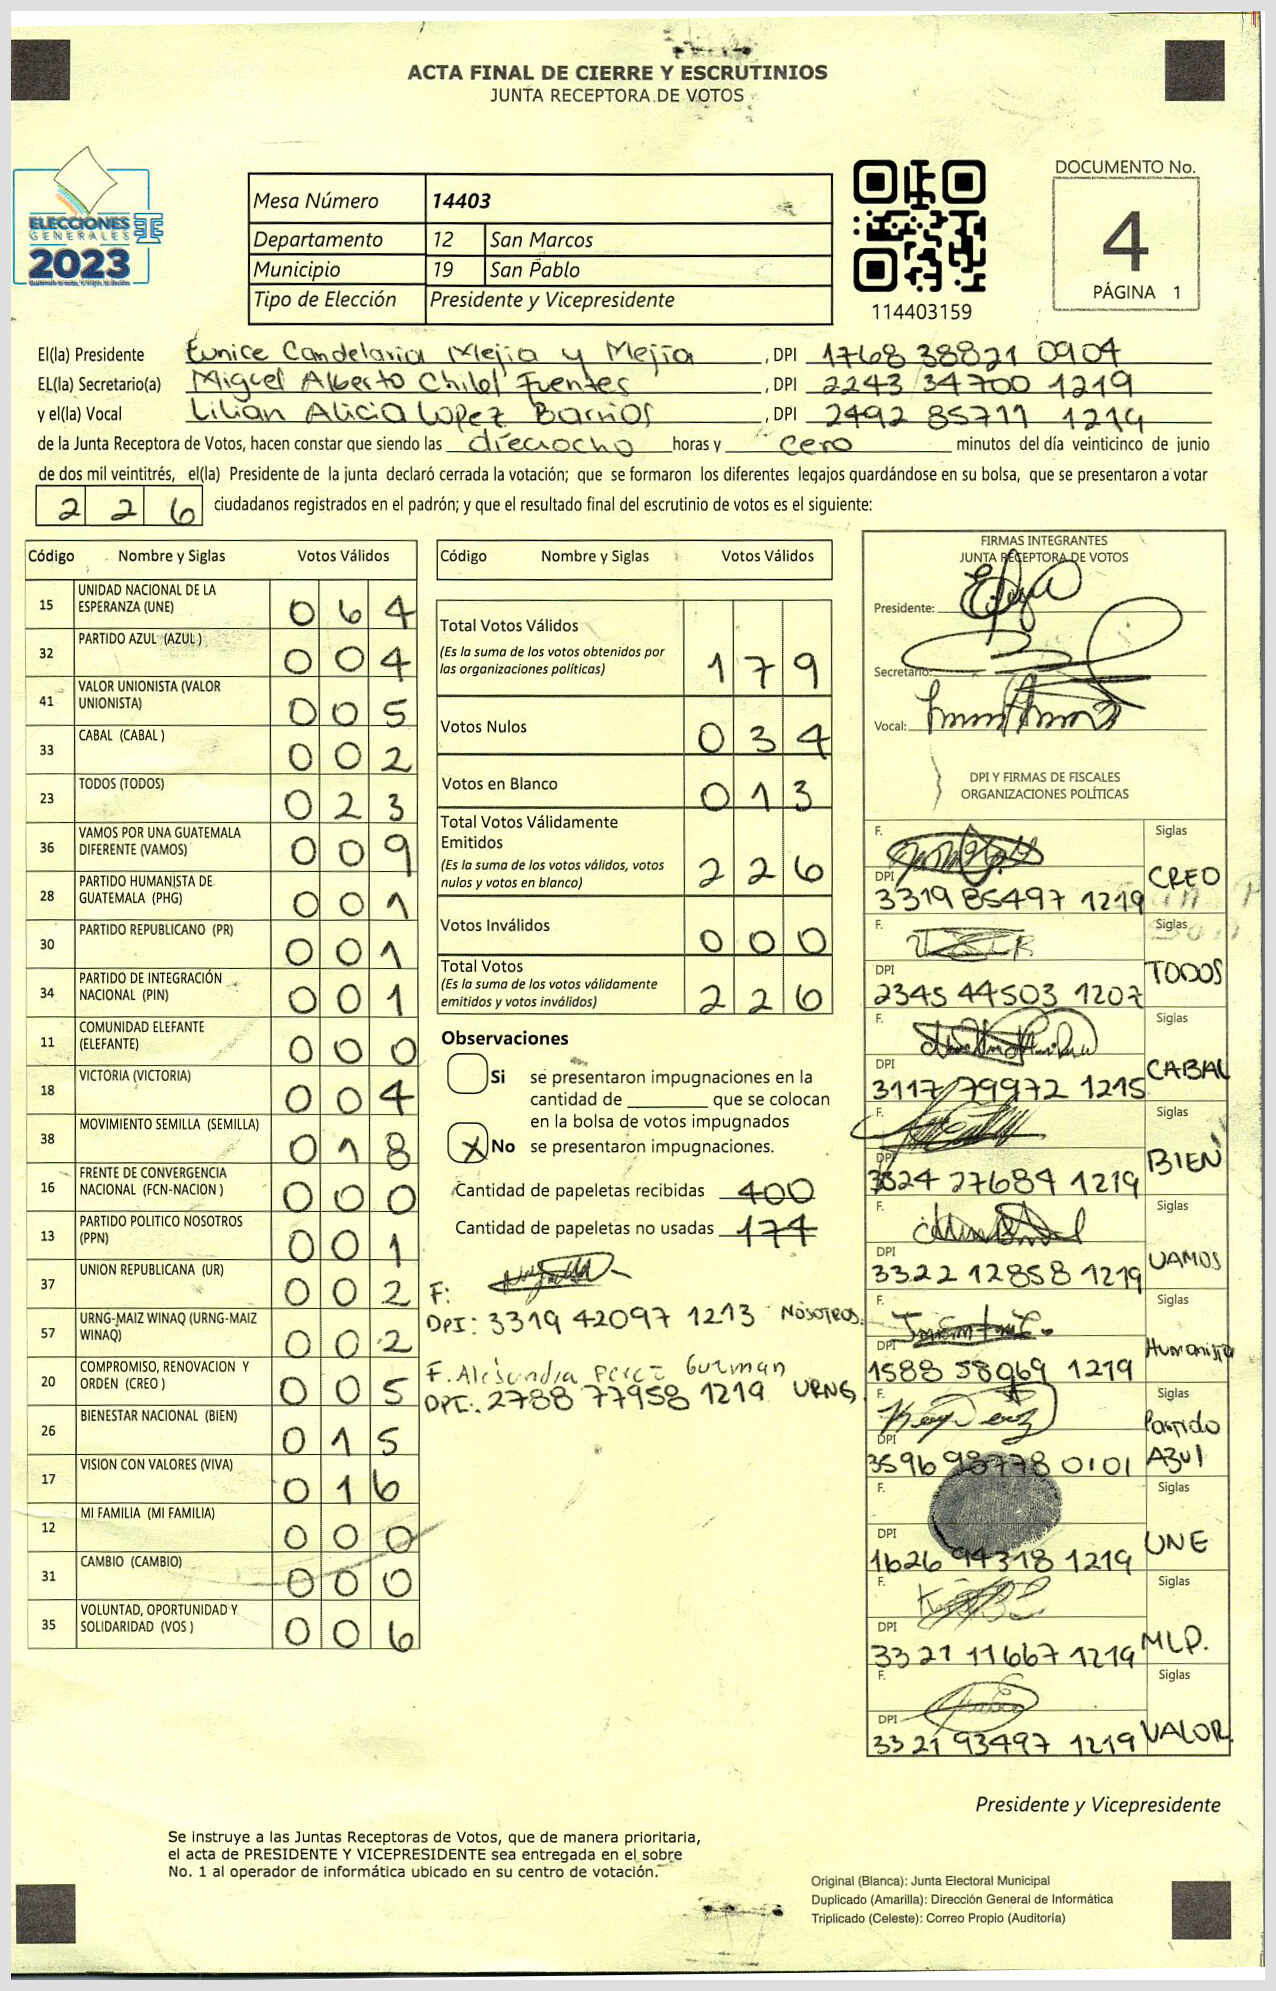 ACTA FINAL DE CIERRE Y ESCRUTINIOS
JUNTA RECEPTORA DE VOTOS
ELECCIONES
GENERALES
2023
Mesa Número 14403
Departamento 12 San Marcos
Municipio 19 San Pablo
Tipo de Elección Presidente y Vicepresidente
114403159
DOCUMENTO No.
4
PÁGINA 1
El(la) Presidente Eunice Candelaria Mejia y Mejia, DPI 1768 38821 0904
EL(la) Secretario(a) Miguel Alberto Chilel Fuentes, DPI 2243 34700 1219
y el(la) Vocal Lilian Alicia Lopez Barrios, DPI 2492 85711 1219
de la Junta Receptora de Votos, hacen constar que siendo las dieciocho horas y cero minutos del día veinticinco de junio
de dos mil veintitrés, el(la) Presidente de la junta declaró cerrada la votación; que se formaron los diferentes legajos guardándose en su bolsa, que se presentaron a votar
226 ciudadanos registrados en el padrón; y que el resultado final del escrutinio de votos es el siguiente:
Código Nombre y Siglas Votos Válidos
15 UNIDAD NACIONAL DE LA ESPERANZA (UNE) 064
32 PARTIDO AZUL (AZUL) 004
41 VALOR UNIONISTA (VALOR UNIONISTA) 005
33 CABAL (CABAL) 002
23 TODOS (TODOS) 023
36 VAMOS POR UNA GUATEMALA DIFERENTE (VAMOS) 009
28 PARTIDO HUMANISTA DE GUATEMALA (PHG) 001
30 PARTIDO REPUBLICANO (PR) 001
34 PARTIDO DE INTEGRACIÓN NACIONAL (PIN) 001
11 COMUNIDAD ELEFANTE (ELEFANTE) 000
18 VICTORIA (VICTORIA) 004
38 MOVIMIENTO SEMILLA (SEMILLA) 018
16 FRENTE DE CONVERGENCIA NACIONAL (FCN-NACION) 000
13 PARTIDO POLITICO NOSOTROS (PPN) 001
37 UNION REPUBLICANA (UR) 002
57 URNG-MAIZ WINAQ (URNG-MAIZ WINAQ) 002
20 COMPROMISO, RENOVACION Y ORDEN (CREO) 005
26 BIENESTAR NACIONAL (BIEN) 015
17 VISION CON VALORES (VIVA) 016
12 MI FAMILIA (MI FAMILIA) 000
31 CAMBIO (CAMBIO) 000
35 VOLUNTAD, OPORTUNIDAD Y SOLIDARIDAD (VOS) 006
Código Nombre y Siglas Votos Válidos
Total Votos Válidos
(Es la suma de los votos obtenidos por las organizaciones políticas) 179
Votos Nulos 034
Votos en Blanco 013
Total Votos Válidamente Emitidos
(Es la suma de los votos válidos, votos nulos y votos en blanco) 226
Votos Inválidos 000
Total Votos
(Es la suma de los votos válidamente emitidos y votos inválidos) 226
Observaciones
Si se presentaron impugnaciones en la
cantidad de ________ que se colocan
en la bolsa de votos impugnados
X No se presentaron impugnaciones.
Cantidad de papeletas recibidas 400
Cantidad de papeletas no usadas 174
F:
DPI: 3319 42097 1213 NOSOTROS.
F. Alejandra Perez Guzman
DPI: 2788 77958 1219 URNG
FIRMAS INTEGRANTES
JUNTA RECEPTORA DE VOTOS
Presidente:
Secretario:
Vocal:
DPI Y FIRMAS DE FISCALES
ORGANIZACIONES POLÍTICAS
F. Siglas
DPI 3319 85497 1219 CREO
F. Siglas
DPI 2345 44503 1207 TODOS
F. Siglas
DPI 3117 79972 1215 CABAL
F. Siglas
DPI 3324 27684 1219 BIEN
F. Siglas
DPI 3322 12858 1219 VAMOS
F. Siglas
DPI 1588 58069 1219 Humanista
F. Siglas
DPI 3596 98778 0101 Partido Azul
F. Siglas
DPI 1626 94318 1219 UNE
F. Siglas
DPI 3321 11667 1219 MLP.
F. Siglas
DPI 3321 93497 1219 VALOR.
Presidente y Vicepresidente
Se instruye a las Juntas Receptoras de Votos, que de manera prioritaria,
el acta de PRESIDENTE Y VICEPRESIDENTE sea entregada en el sobre
No. 1 al operador de informática ubicado en su centro de votación.
Original (Blanca): Junta Electoral Municipal
Duplicado (Amarilla): Dirección General de Informática
Triplicado (Celeste): Correo Propio (Auditoría)